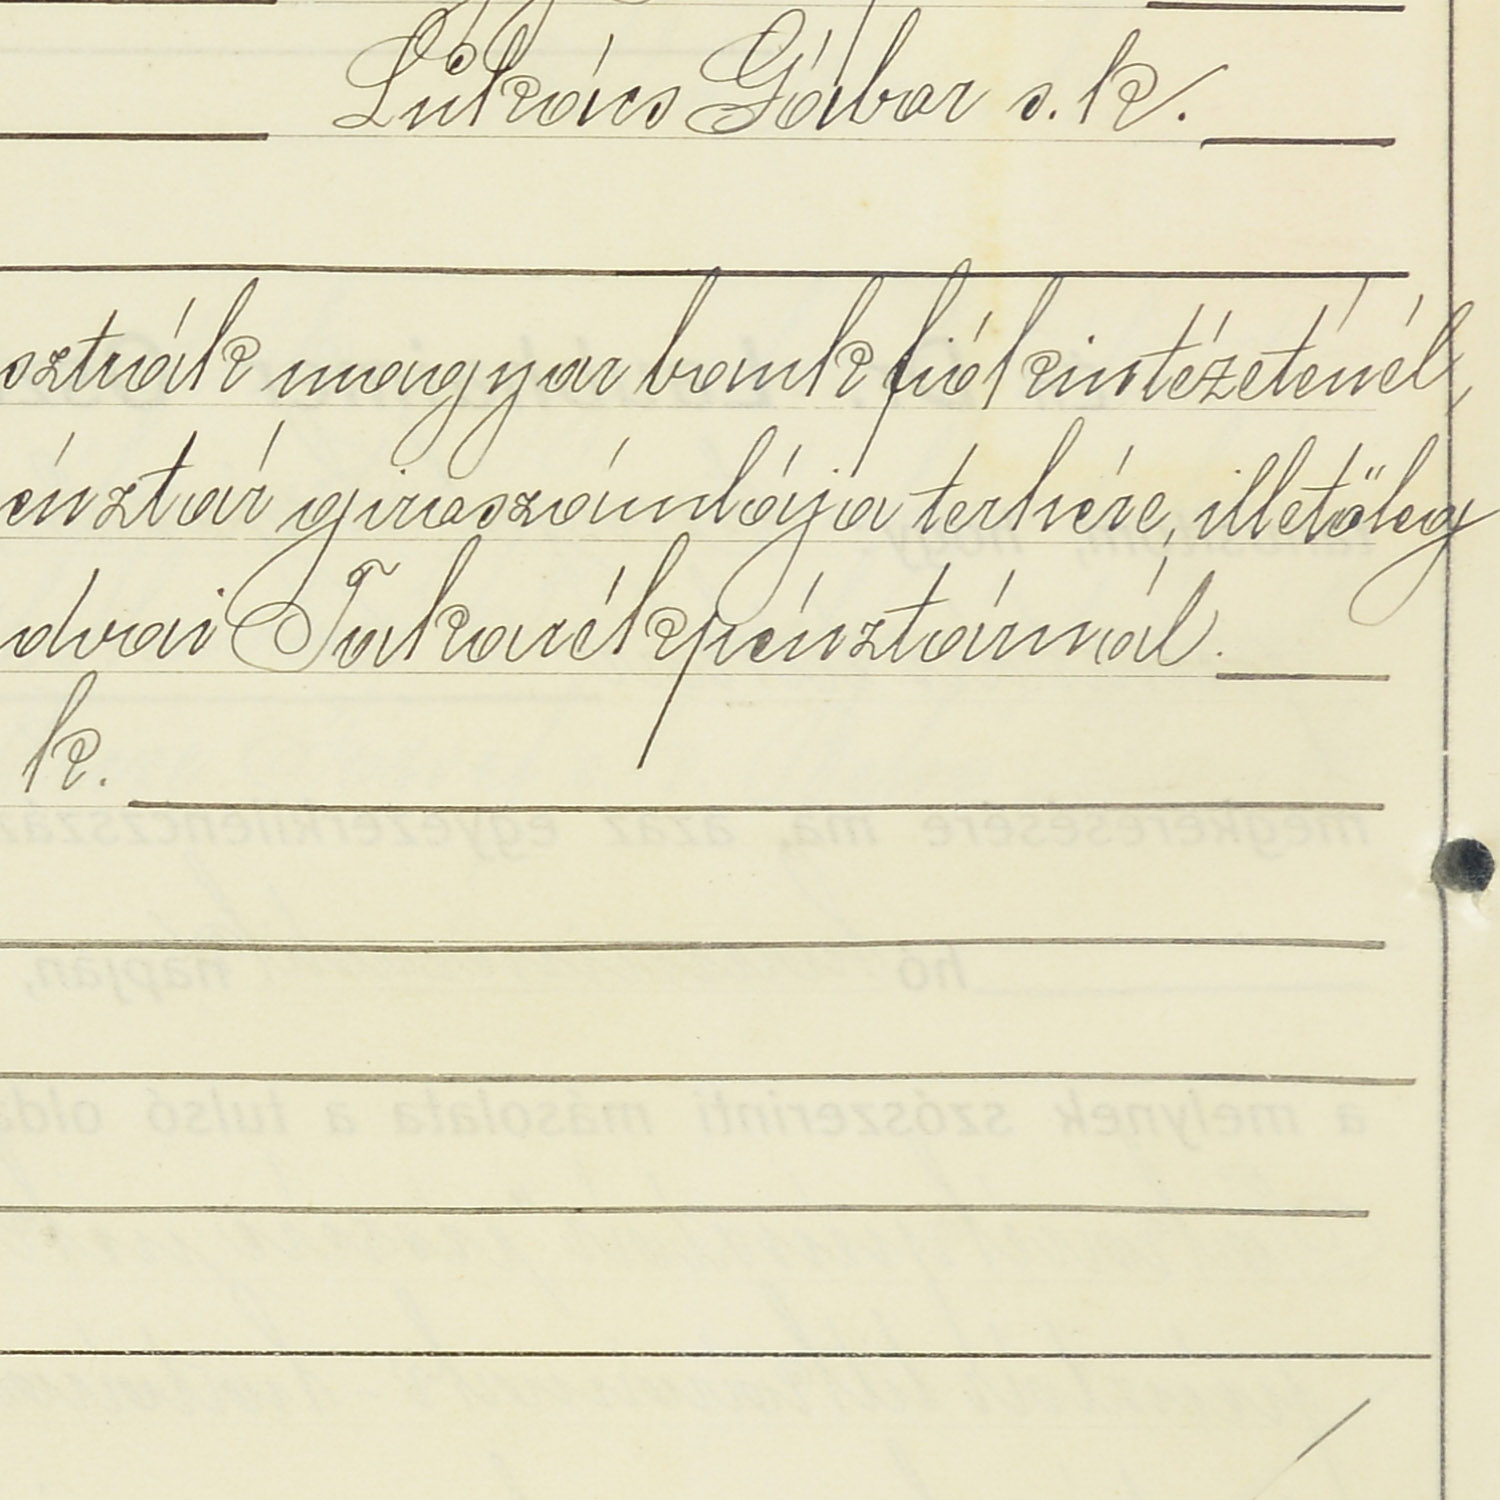 Lukács Gábor s. k.
sztrák magyar bank fiókintézeténél,
énztár giroszámlája terhére, illetőleg
dvai Takarékpénztárnál.
k.